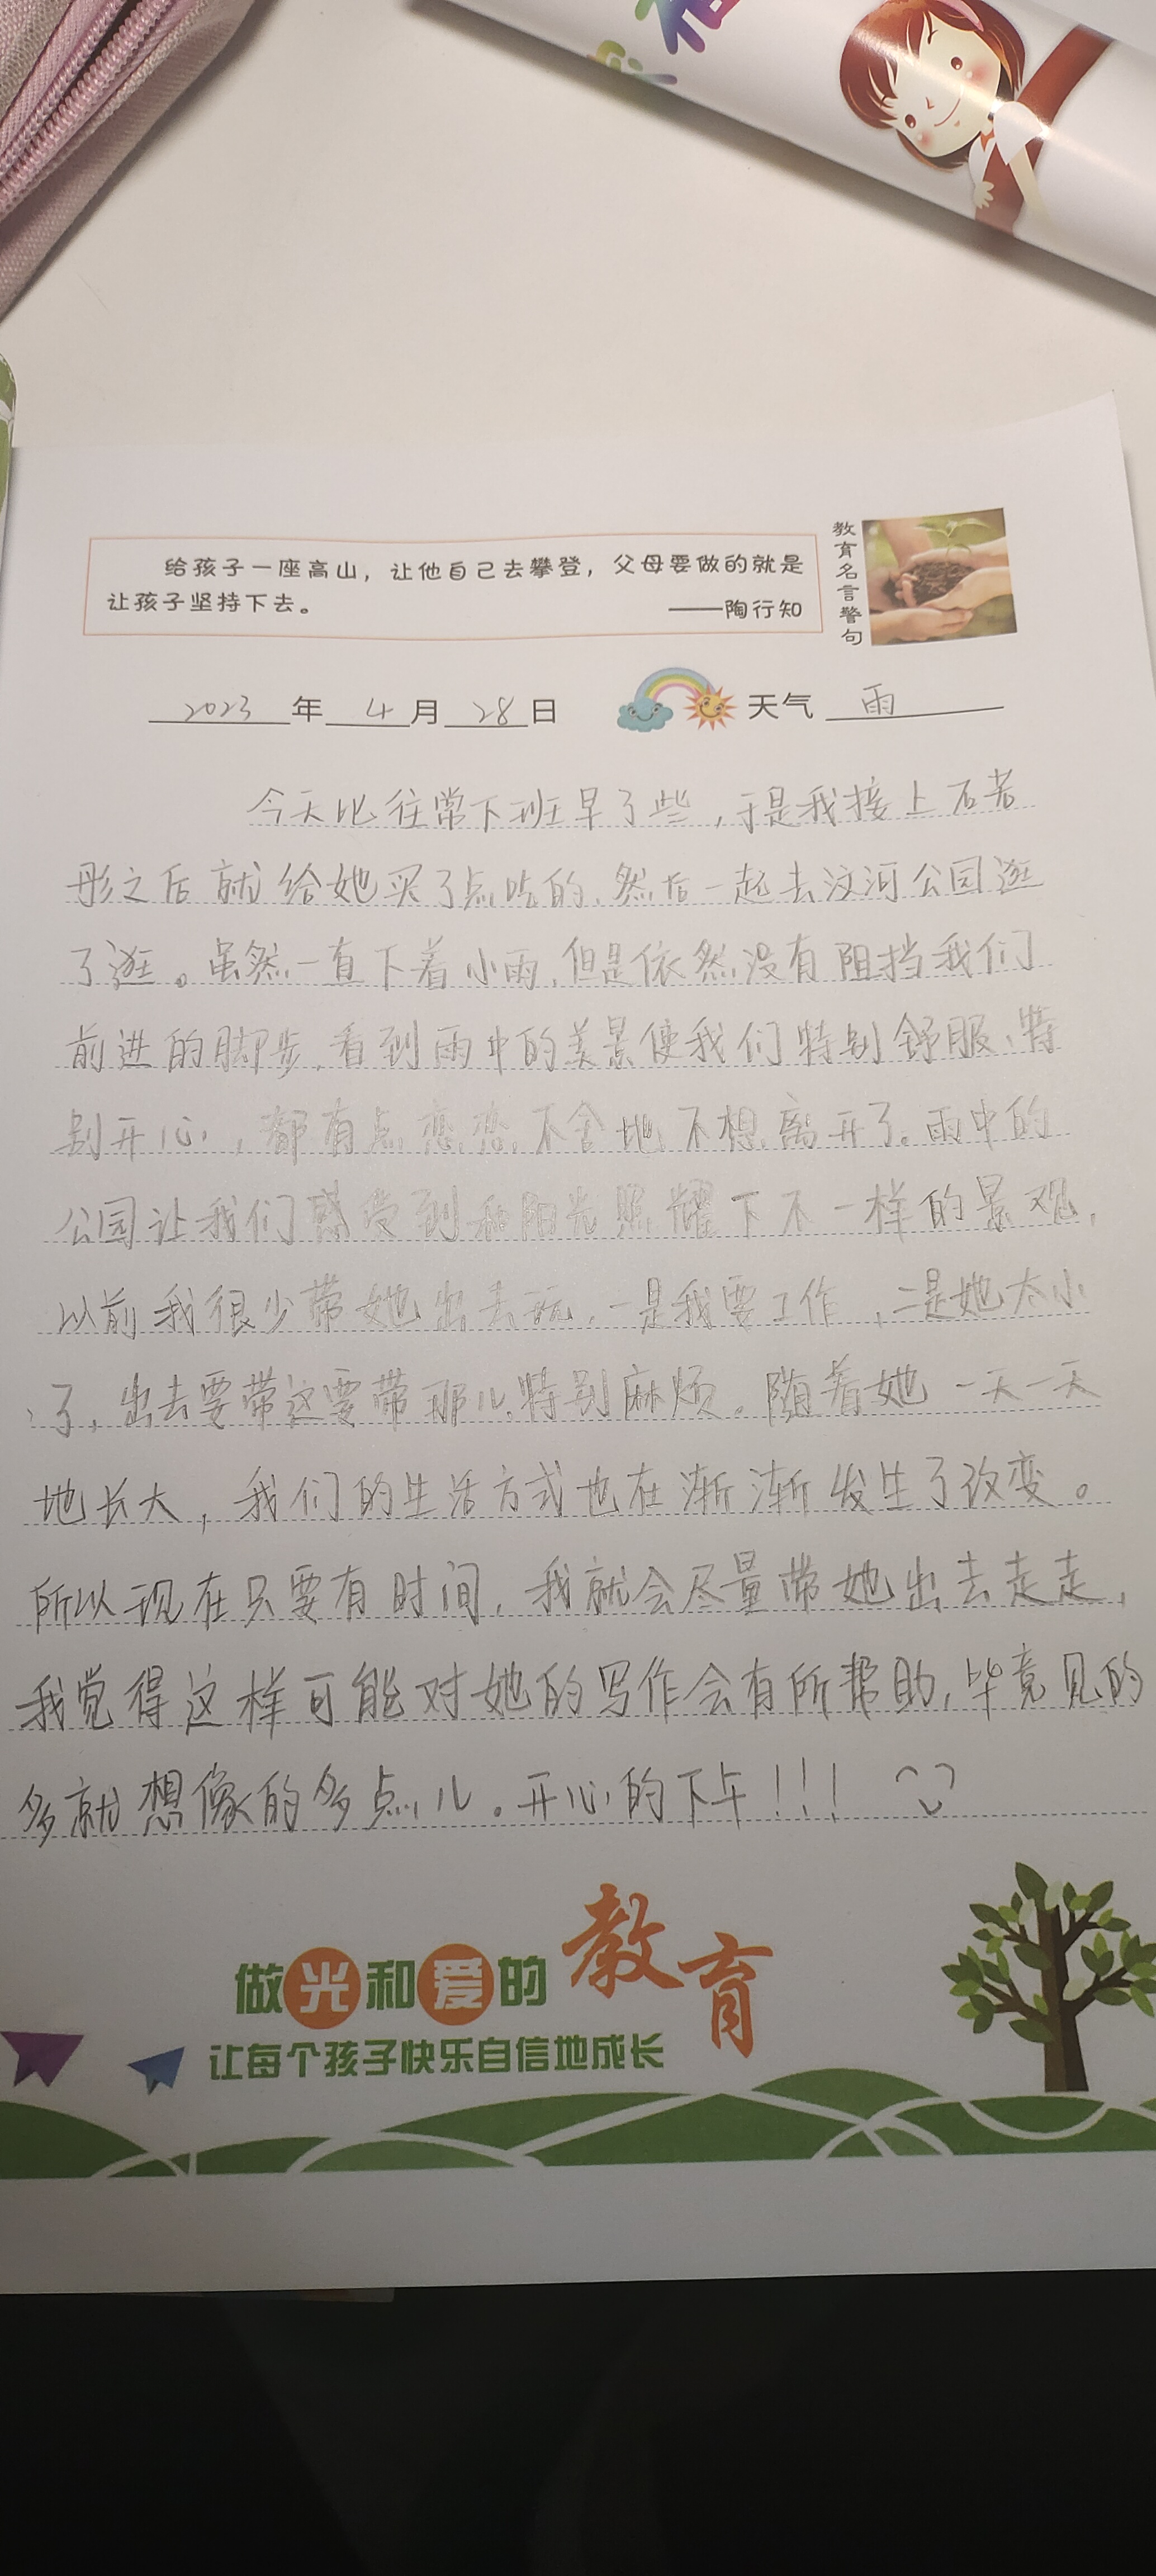 给孩子一座高山，让他自己去攀登，父母要做的就是
让孩子坚持下去。 ——陶行知
教育名言警句
2023年4月28日 天气 雨
今天比往常下班早了些，于是我接上石若
彤之后就给她买了点吃的，然后一起去汶河公园逛
了逛。虽然一直下着小雨，但是依然没有阻挡我们
前进的脚步，看到雨中的美景使我们特别舒服、特
别开心，都有点恋恋不舍地不想离开了。雨中的
公园让我们感受到和阳光照耀下不一样的景观，
以前我很少带她出去玩，一是我要工作，二是她太小
了，出去要带这要带那儿，特别麻烦。随着她一天一天
地长大，我们的生活方式也在渐渐发生了改变。
所以现在只要有时间，我就会尽量带她出去走走，
我觉得这样可能对她的写作会有所帮助，毕竟见的
多就想像的多点儿。开心的下午！！！
做光和爱的教育
让每个孩子快乐自信地成长